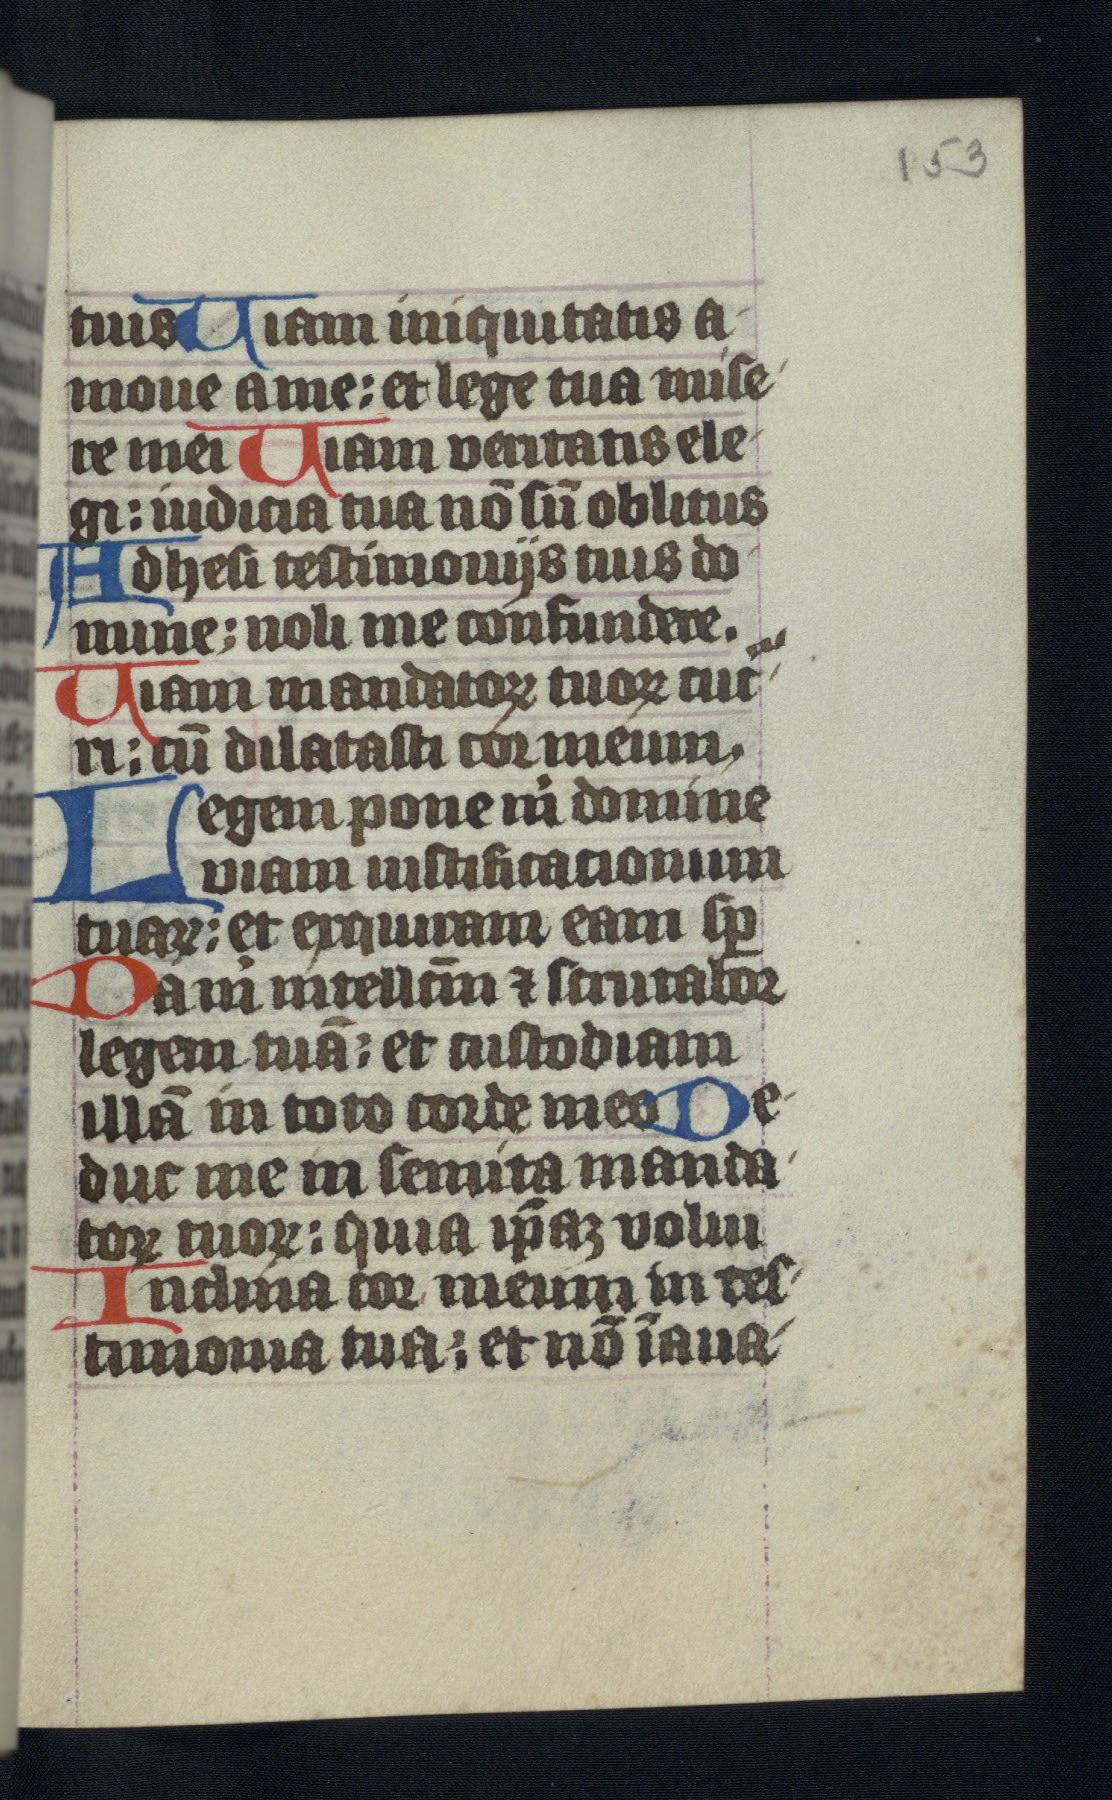 153
tuis Uiam iniquitatis a-
moue a me: et lege tua mise-
re mei Uiam veritatis ele-
gi: iudicia tua nō sū oblitus
Adhesi testimonijs tuis do-
mine; noli me confundere.
Uiam mandatoꝝ tuoꝝ cuc-
ri: cū dilatasti cor meum.
Legem pone m̍ domine
viam iustificationum
tuaꝝ: et exquiram eam sꝑ
Da m̍ intellc̄m ⁊ scrutabor
legem tuā: et custodiam
illā in toto corde meo De-
duc me in semita manda-
toꝝ tuoꝝ: quia ip̄aꝫ volui
Inclina cor meum in tes-
timonia tua: et nō ī aua-